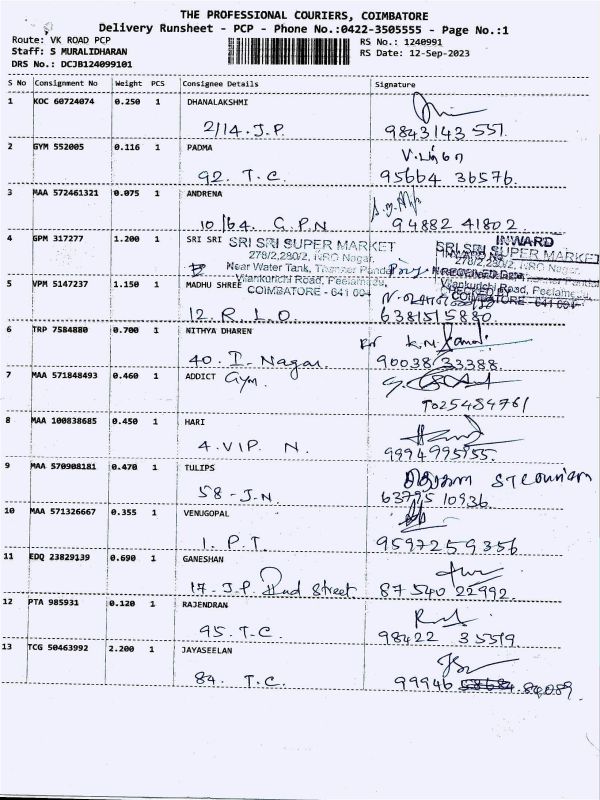 THE PROFESSIONAL COURIERS, COIMBATORE
Delivery Runsheet - PCP - Phone No.:0422-3505555 - Page No.:1
Route: VK ROAD PCP
RS No.: 1240991
Staff: S MURALIDHARAN
RS Date: 12-Sep-2023
DRS No.: DCJB124099101
S No Consignment No Weight PCS Consignee Details Signature
1 KOC 60724074 0.250 1 DHANALAKSHMI
2/14. J.P. 9843143 551.
2 GYM 552005 0.116 1 PADMA
92. T.C. 95664 36576.
3 MAA 572461321 0.075 1 ANDRENA
10/64. G.P.N 94882 41802
4 GPM 317277 1.200 1 SRI SRI
SRI SRI SUPER MARKET
278/2,280/2, NRO Nagar,
Near Water Tank, Thanneer Pandal
Vilankurichi Road, Peelamedu,
COIMBATORE - 641 004
INWARD
SRI SRI SUPER MARKET
278/2,280/2, NRO Nagar,
Vilankurichi Road, Peelamedu
COIMBATORE - 641 004
5 VPM 5147237 1.150 1 MADHU SHREE
12. R.L.O 6381515880
6 TRP 7584880 0.700 1 NITHYA DHAREN
40. I- Nagar. 90038 33388.
7 MAA 571848493 0.460 1 ADDICT Gym.
7025484761
8 MAA 100838685 0.450 1 HARI
4. VIP. N. 9994995155.
9 MAA 570908181 0.470 1 TULIPS
58 - J.N. 63795 10936.
10 MAA 571326667 0.355 1 VENUGOPAL
1. P.T. 9597259356
11 EDQ 23829139 0.690 1 GANESHAN
17. J.P. Street 87540 22992.
12 PTA 985931 0.120 1 RAJENDRAN
95. T.C. 98422 35519
13 TCG 50463992 2.200 1 JAYASEELAN
84. T.C. 99946 84089.